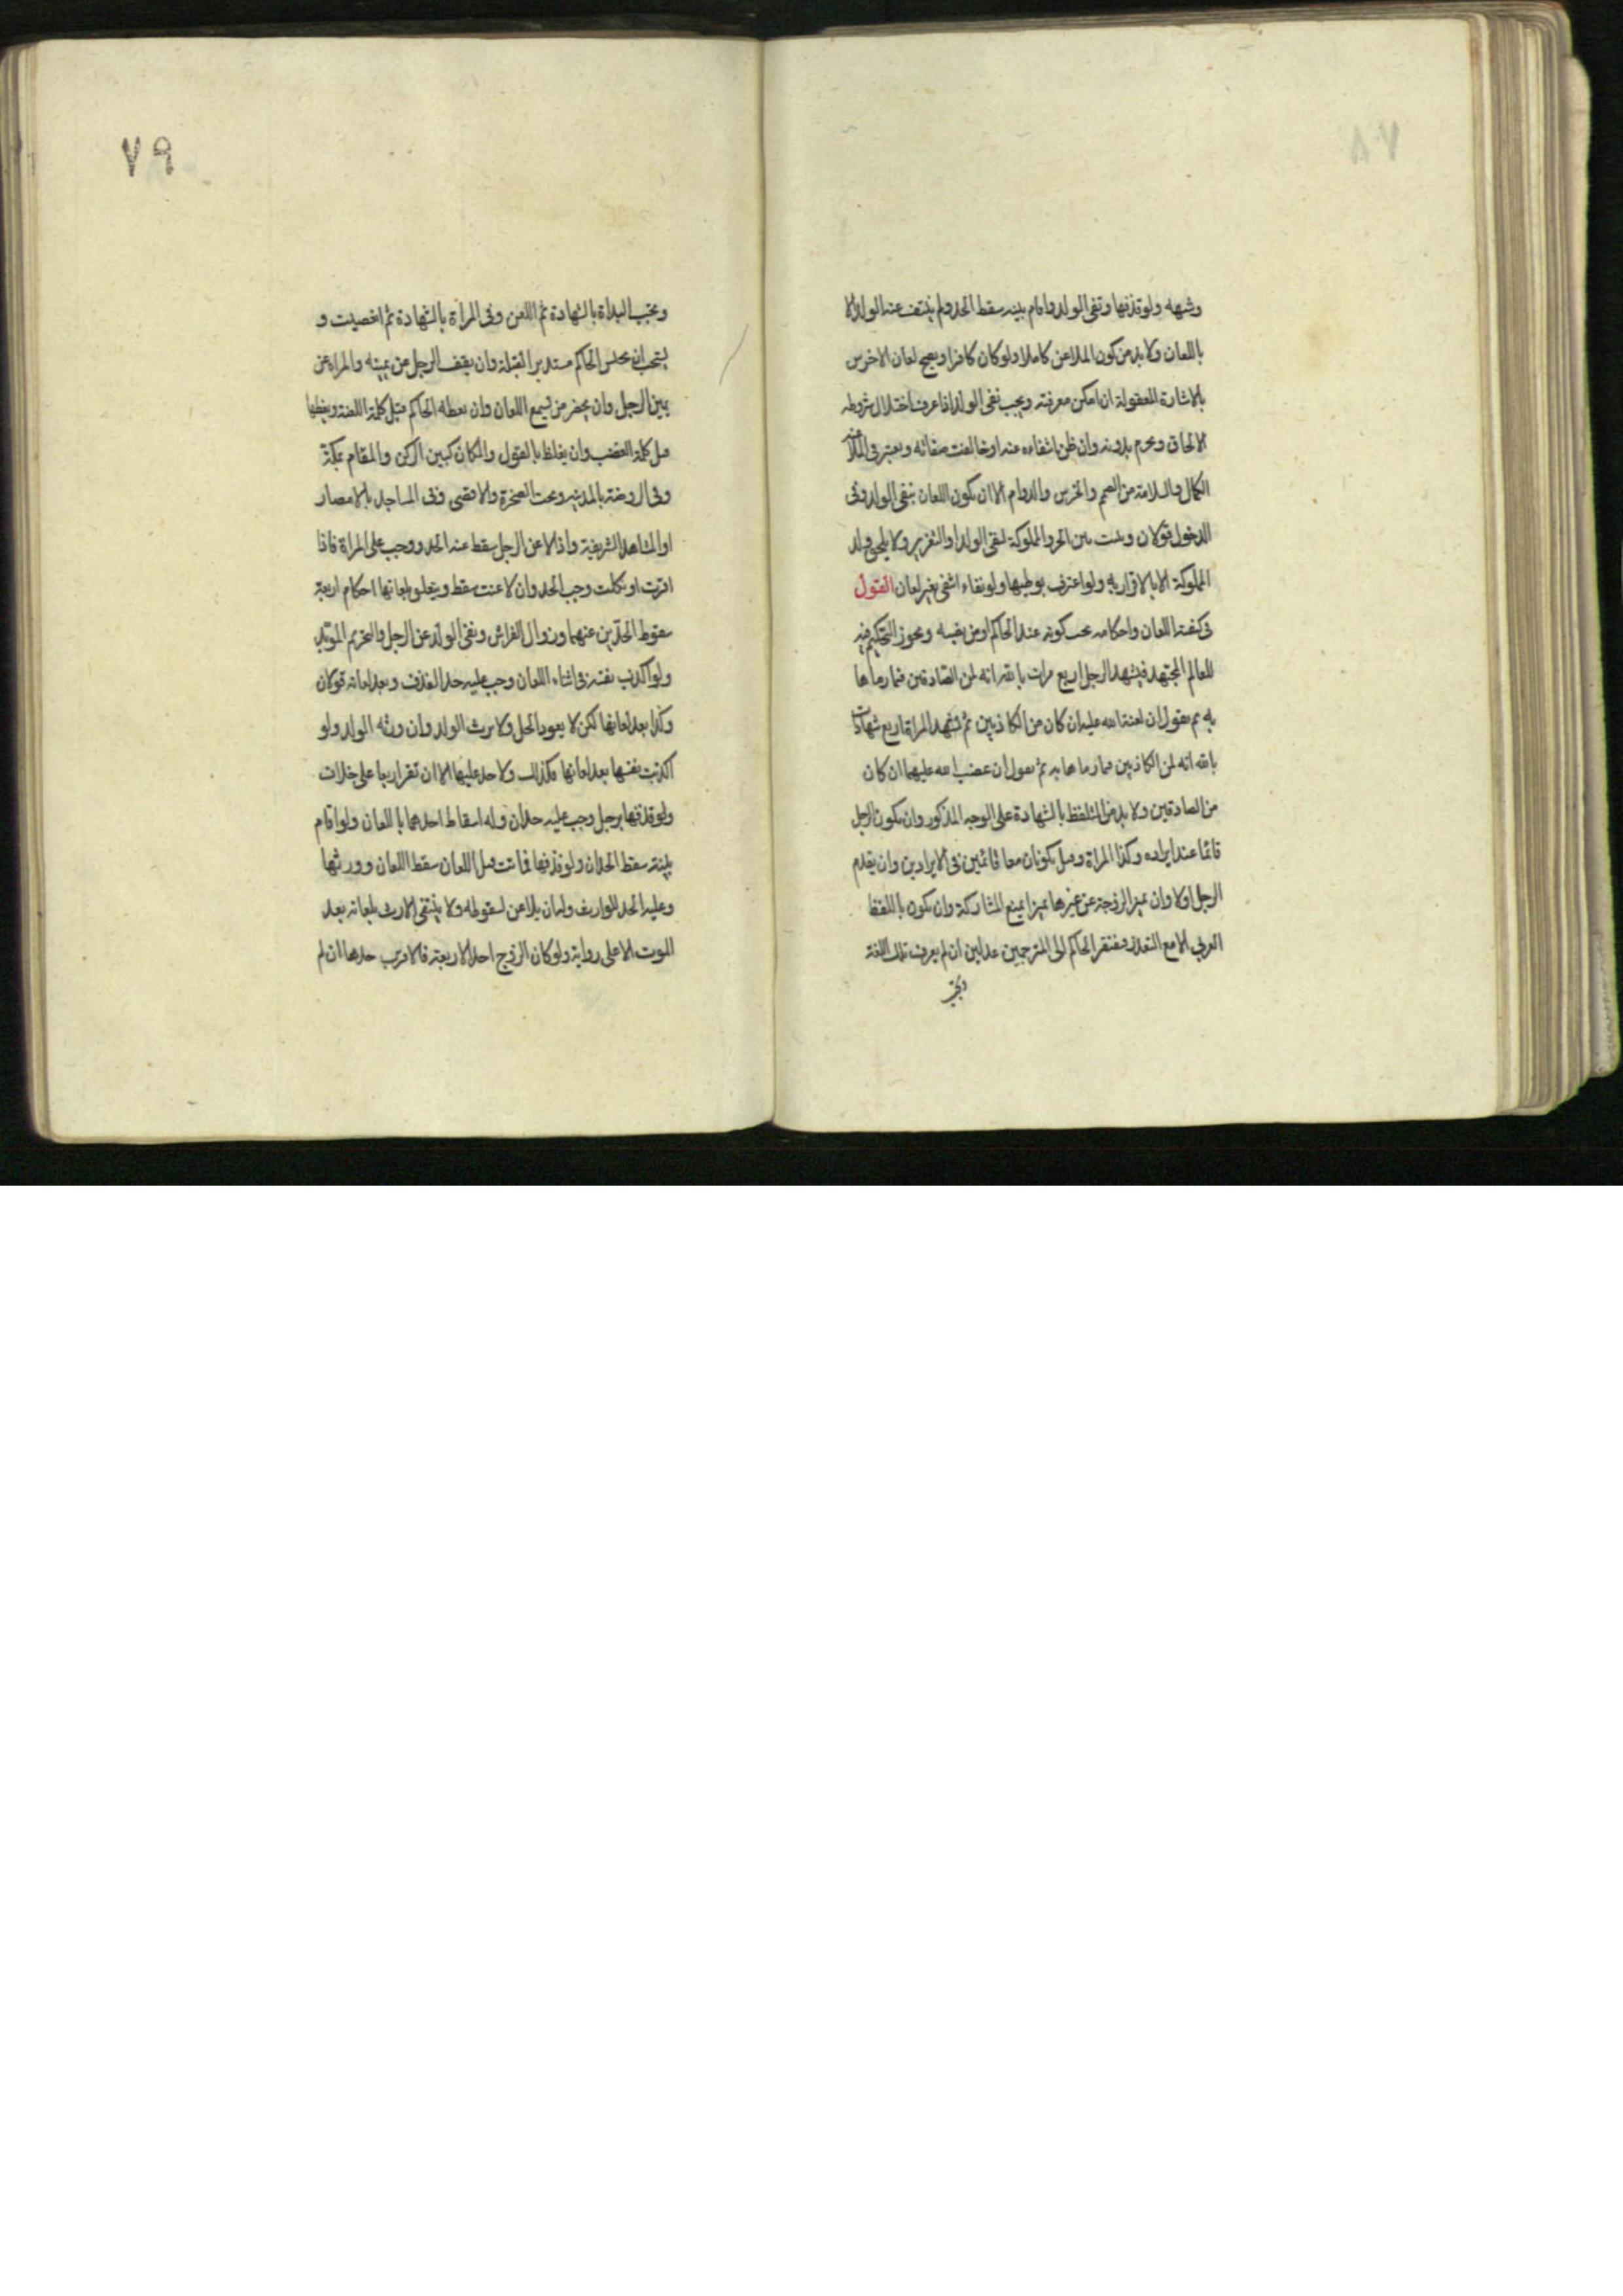 ٧٨
وشبهه ولو قذفها ونفى الولد واقام بينه سقط الحد ولم ينتف عنه الولد الا
باللعان ولا بد من كون الملاعن كاملا ولو كان كافرا ويصح لعان الاخرس
بالاشارة المعقولة ان امكن معرفته ويجب نفى الولد اذا عرف اختلال شروط
الالحاق ويحرم بدونه وان ظن انتفاءه عنه او خالفت صفاته ويعتبر فى الملاعنة
الكمال والسلامة من الصمم والخرس والدوام الا ان يكون اللعان بنفى الولد وفى
الدخول قولان ويثبت بين الحر والمملوكة لنفى الولد او التعزير ولا يلحق ولد
المملوكة الا بالاقرار به ولو اعترف بوطيها ولو نفاه انتفى بغير لعان القول
فى كيفية اللعان واحكامه يجب كونه عند الحاكم او من نصبه ويجوز التحكيم فيه
للعالم المجتهد فيشهد الرجل اربع مرات بالله انه لمن الصادقين فيما رماها
به ثم يقول ان لعنة الله عليه ان كان من الكاذبين ثم تشهد المراة اربع شهادات
بالله انه لمن الكاذبين فيما رماها به ثم تقول ان غضب الله عليها ان كان
من الصادقين ولا بد من التلفظ بالشهادة على الوجه المذكور وان يكون الرجل
قائما عند ايراده وكذا المراة وقيل يكونان معا قائمين فى الايرادين وان يتقدم
الرجل اولا وان يميز الزوجة عن غيرها تميزا يمنع المشاركة وان يكون باللفظ
العربى الا مع التعذر فيفتقر الحاكم الى المترجمين عدلين ان لم يعرف تلك اللغة
وتجب
٧٩
وتجب البداة بالشهادة ثم اللعن وفى المراة بالشهادة ثم الغضب و
يستحب ان يجلس الحاكم مستدبر القبلة وان يقف الرجل عن يمينه والمراة عن
يمين الرجل وان يحضر من يسمع اللعان وان يعظه الحاكم قبل كلمة اللعنة ويعظها
قبل كلمة الغضب وان يغلظ بالقول والمكان كبين الركن والمقام بمكة
وفى الروضة بالمدينة وتحت الصخرة والاقصى وفى المساجد بالامصار
او المشاهد الشريفة واذا لاعن الرجل سقط عنه الحد ووجب على المراة فاذا
اقرت او نكلت وجب الحد وان لاعنت سقط ويتعلق بلعانها احكام اربعة
سقوط الحدين عنهما وزوال الفراش ونفى الولد عن الرجل والتحريم الموبد
ولو اكذب نفسه فى اثناء اللعان وجب عليه حد القذف وبعد لعانه قولان
وكذا بعد لعانها لكن لا يعود الحل ولا يرث الولد وان ورثه الولد ولو
اكذبت نفسها بعد لعانها فكذلك ولا حد عليها الا ان تقر اربعا على خلاف
ولو قذفها برجل وجب عليه حدان وله اسقاط احدهما باللعان ولو اقام
بينة سقط الحدان ولو قذفها فماتت قبل اللعان سقط اللعان وورثها
وعليه الحد للوارث وله ان يلاعن لسقوطه ولا ينتفى الارث بلعانه بعد
الموت الا على رواية ولو كان الزوج احد الاربعة فالاقرب حدها ان لم